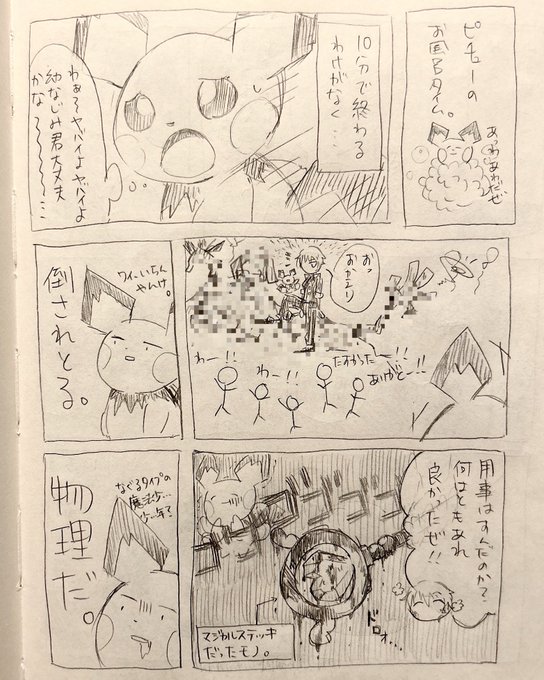 ピチューの
お風呂タイム。
あわあわだぜ
10分で終わる
わけがなく…
わぁぁヤバイよヤバイよ
幼なじみ君大丈夫
かな〜〜〜〜…
おっ
おかえり
たすかったー!!
ありがとー!!
わー!!
わー!!
ワイいらん
やんけ。
倒されとる。
用事はすんだのか?
何はともあれ
良かったぜ!!
ゴゴゴゴ
ドロォ…
マジカルステッキ
だったモノ。
なぐるタイプの
魔法少…
少年?
物理だ。